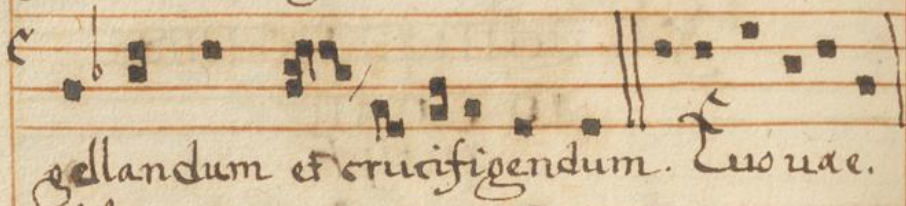 gellandum et crucifigendum. Euouae.